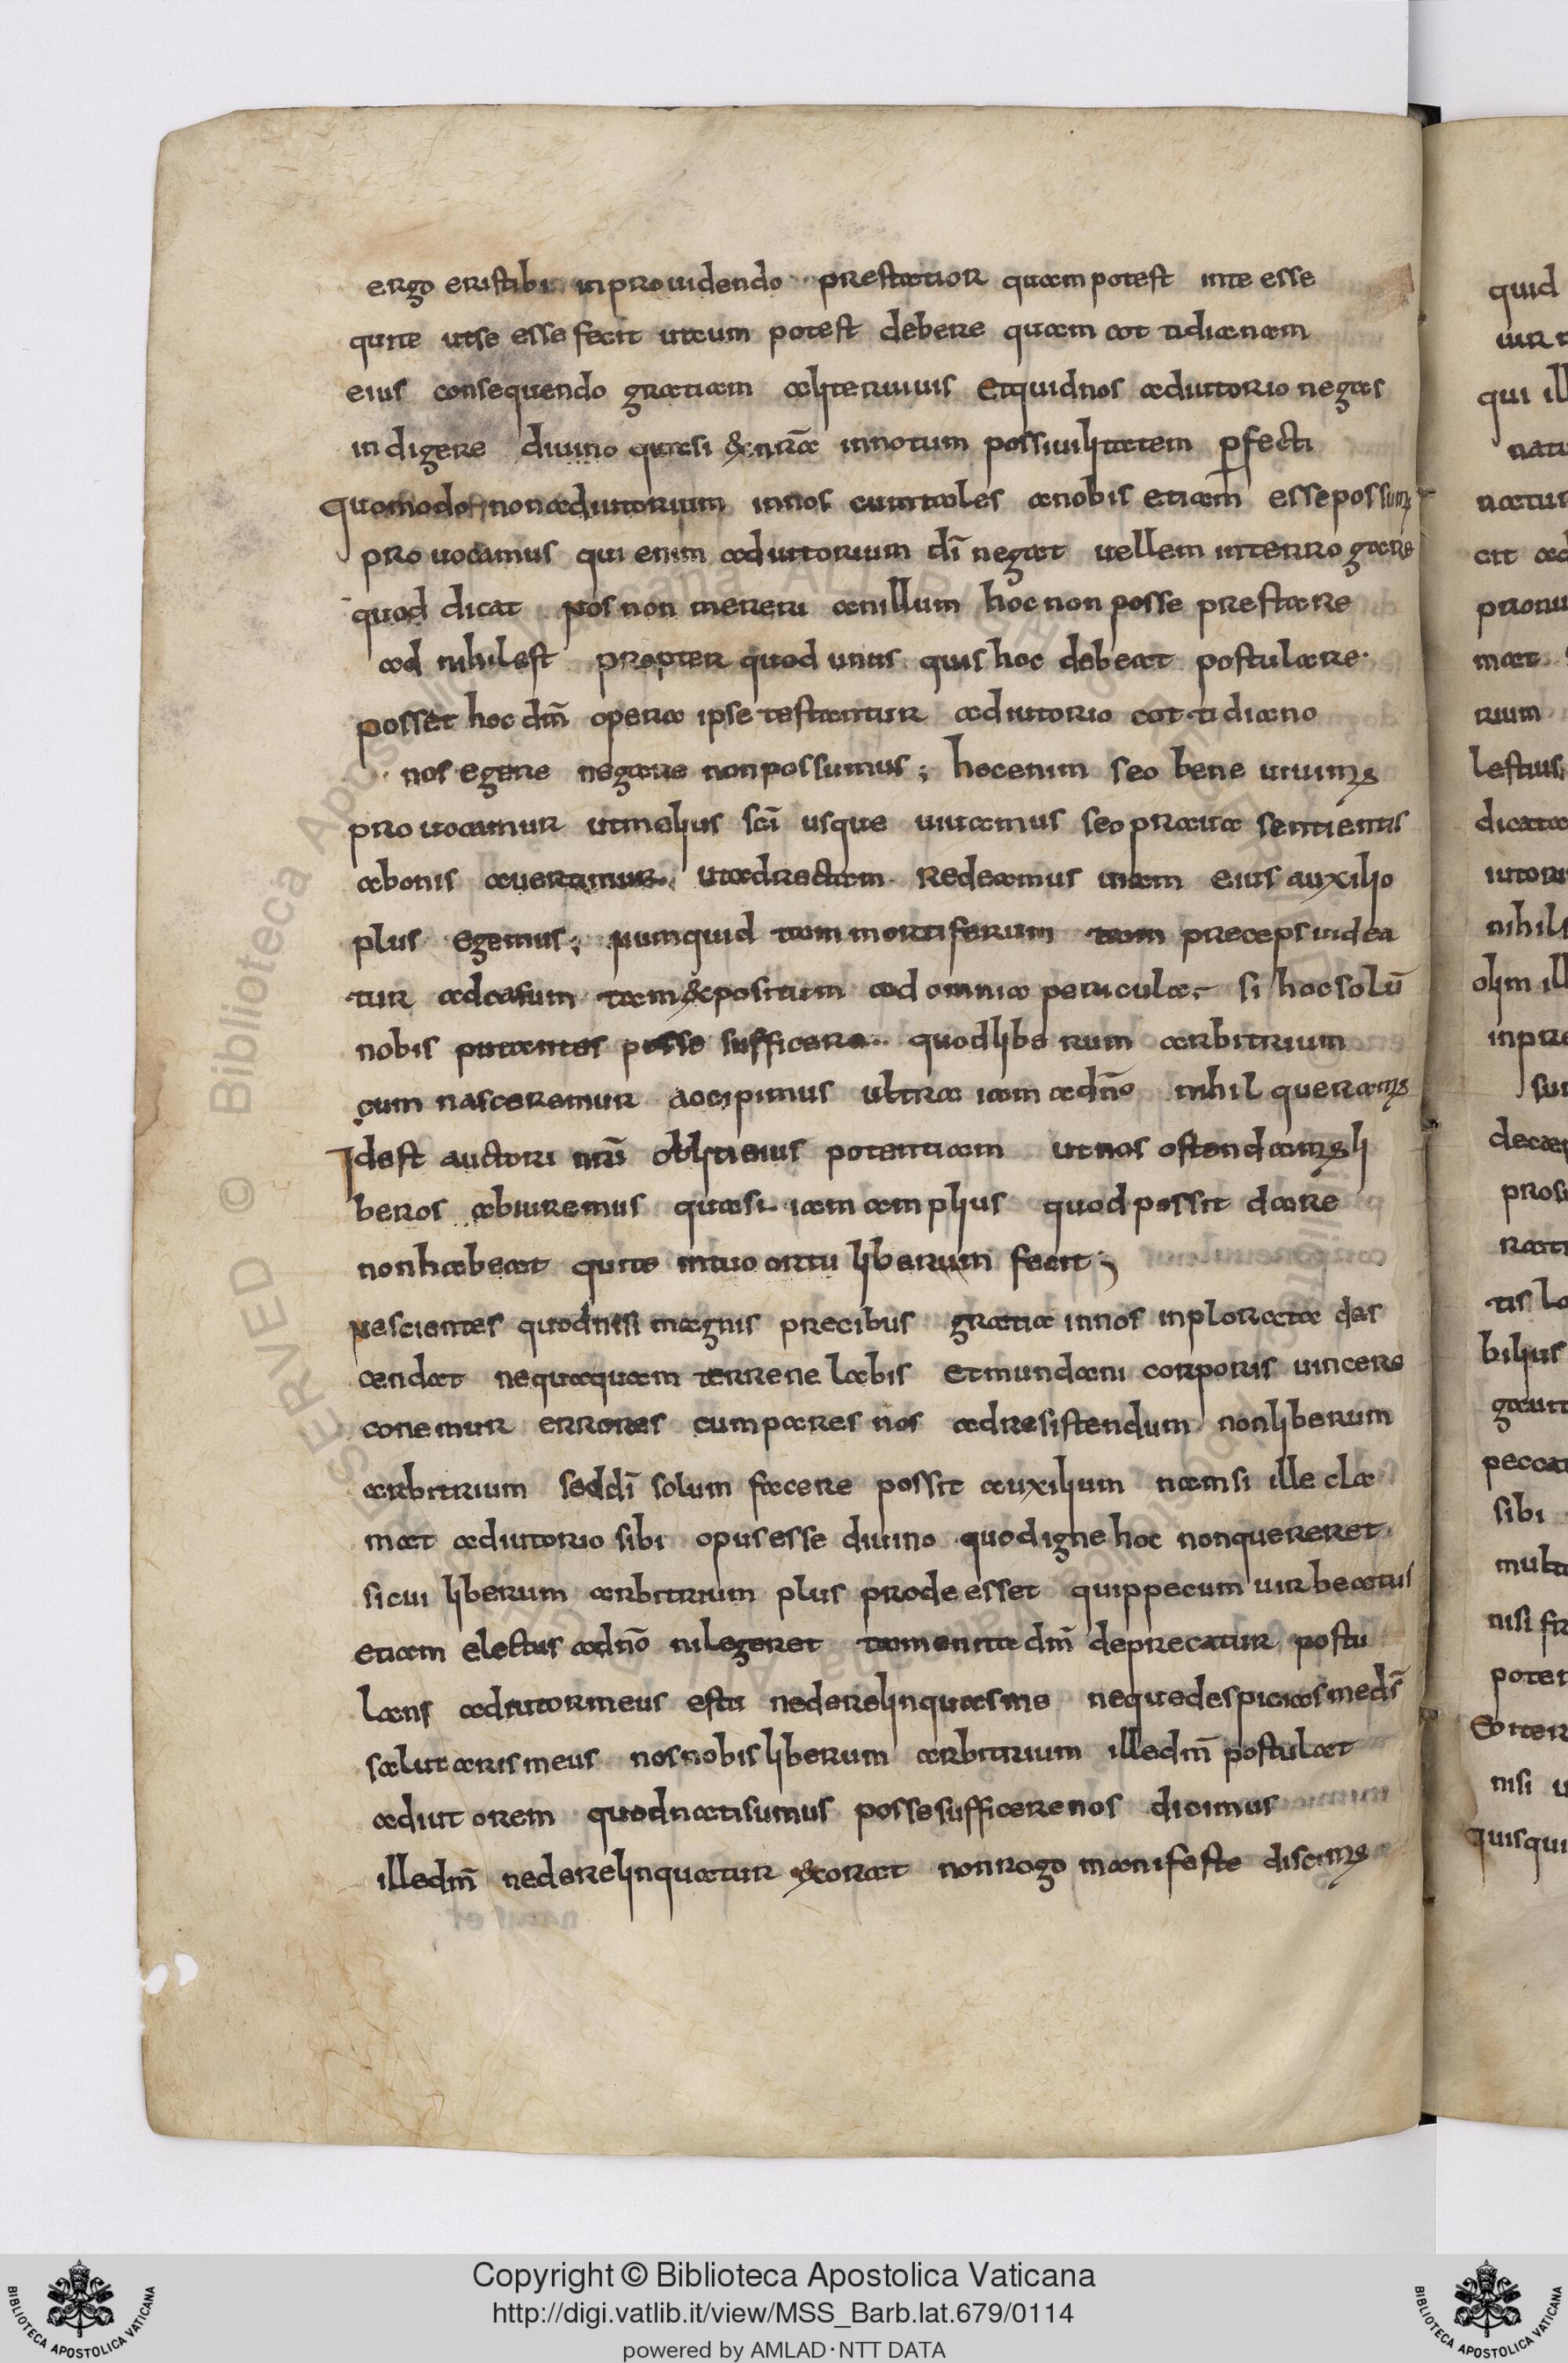 ergo eristibi inprouidendo prestatior quam potest inte esse
quite utse esse fecit utcum potest debere quam cot tidianam
eius consequendo gratiam aliteruiuis Etquidnos adiutorio negas
indigere diuino quasi &nr̄a innotum possiuilitatem ꝑfecti
quomodo nonadiutorium innos anobis etiam esse possumꝰ
prouocamus qui enim adiutorium dī negat uellem interrogare
quod dicat nos non mereri anillum hoc non posse prestare
ad nihil est propter quod unus quis hoc debeat postulare·
posset hoc dn̄i opera ipse testantur adiutorio cot tidiano
nos egere negare nonpossumus; hocenim seo bene uiuimꝰ
prouocamur utmelius scī usque uiuamus seo praua sentientis
abonis auertimur utadrectam redeamus inam eius auxilio
plus egemus; numquid tam mortiferum tam preceps uidea
tur adcasum tam &positum ad omnia pericula si hoc solū
nobis putantes posse sufficere quodlibe rum arbitrium
cum nasceremur accipimus ultra iam adn̄o nihil queramꝰ
Idest auctori nr̄i oblitieius potentiam ut nos ostendamꝰ li
beros abiuremus quasi iam amplius quod possit dare
nonhabeat quite intuo ortu liberum fecit;
nescientes quodnisi magnis precibus gratia innos inplorata des
cendat nequaquam terrene labis etmundani corporis uincere
conemur errores cumpares nos adresistendum nonliberum
arbitrium seddī solum facere possit auxilium namsi ille cla
mat adiutorio sibi opus esse diuino quodigne hoc nonquereret
sicui liberum arbitrium plus prode esset quippecum uir beatus
etiam electus adn̄o nilegeret tamenita dn̄m deprecatur postu
lans adiutormeus estu nederelinquasme nequedespicias meds̄
salutaris meus nosnobis liberum arbitrium illedn̄m postulat
adiut orem quodnatisumus possesufficerenos dicimus
illedn̄m nederelinquatur &orat nonrogo manifeste discimꝰ
quid
qui ill
pronu
mat
rium
nihil
olim ill
inpre
bilius
sibi
nisi
poter
quisqui
Copyright © Biblioteca Apostolica Vaticana
http://digi.vatlib.it/view/MSS_Barb.lat.679/0114
powered by AMLAD·NTT DATA
BIBLIOTECA APOSTOLICA VATICANA
BIBLIOTECA APOSTOLICA VATICANA